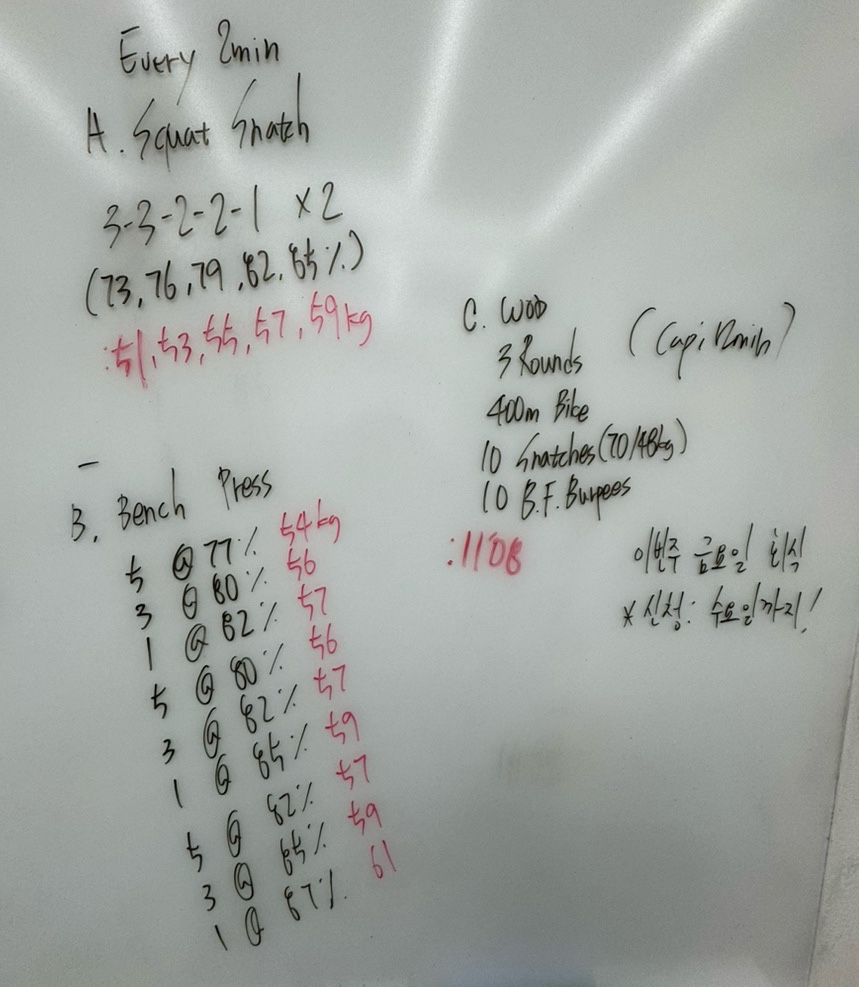 Every 2min
A. Squat Snatch
3-3-2-2-1 x2
(73, 76, 79, 82, 85%)
: 51, 53, 55, 57, 59kg
B. Bench Press
5 @ 77% 54kg
3 @ 80% 56
1 @ 82% 57
5 @ 80% 56
3 @ 82% 57
1 @ 85% 59
5 @ 82% 57
3 @ 85% 59
1 @ 87% 61
C. WOD
3 Rounds (Cap: 12min)
400m Bike
10 Snatches (70/48kg)
10 B.F. Burpees
: 11'08
이번주 금요일 회식
* 신청: 수요일까지!